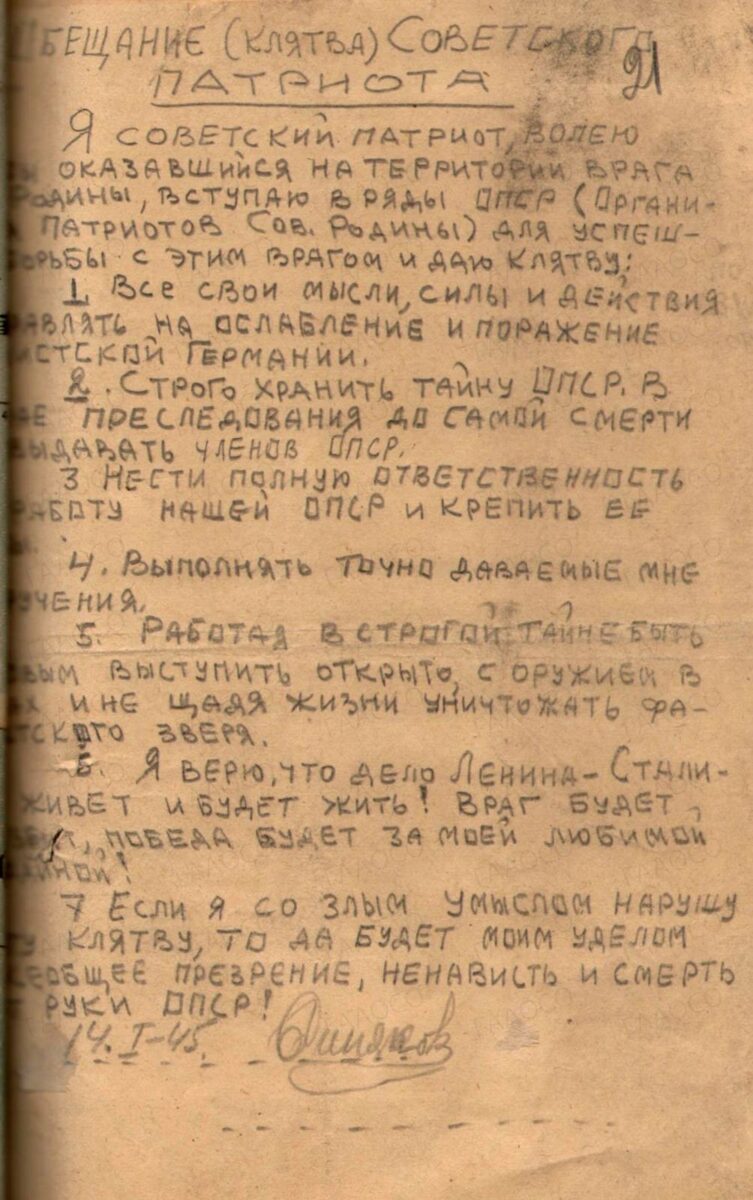 БЕЩАНИЕ (КЛЯТВА) СОВЕТСКОГО
ПАТРИОТА
21
Я СОВЕТСКИЙ ПАТРИОТ, ВОЛЕЮ
ОКАЗАВШИЙСЯ НА ТЕРРИТОРИИ ВРАГА
РОДИНЫ, ВСТУПАЮ В РЯДЫ ОПСР (ОРГАНИ-
ПАТРИОТОВ СОВ. РОДИНЫ) ДЛЯ УСПЕШ-
ОРЬБЫ С ЭТИМ ВРАГОМ И ДАЮ КЛЯТВУ:
1. ВСЕ СВОИ МЫСЛИ, СИЛЫ И ДЕЙСТВИЯ
АВЛЯТЬ НА ОСЛАБЛЕНИЕ И ПОРАЖЕНИЕ
ИСТСКОЙ ГЕРМАНИИ.
2. СТРОГО ХРАНИТЬ ТАЙНУ ОПСР. В
АЕ ПРЕСЛЕДОВАНИЯ ДО САМОЙ СМЕРТИ
ВЫДАВАТЬ ЧЛЕНОВ ОПСР.
3 НЕСТИ ПОЛНУЮ ОТВЕТСТВЕННОСТЬ
РАБОТУ НАШЕЙ ОПСР И КРЕПИТЬ ЕЕ
Ы.
4. ВЫПОЛНЯТЬ ТОЧНО ДАВАЕМЫЕ МНЕ
УЧЕНИЯ.
5. РАБОТАЯ В СТРОГОЙ ТАЙНЕ БЫТЬ
ОВЫМ ВЫСТУПИТЬ ОТКРЫТО, С ОРУЖИЕМ В
АХ И НЕ ЩАДЯ ЖИЗНИ УНИЧТОЖАТЬ ФА-
ТСКОГО ЗВЕРЯ.
6. Я ВЕРЮ, ЧТО ДЕЛО ЛЕНИНА-СТАЛИ-
ЖИВЕТ И БУДЕТ ЖИТЬ! ВРАГ БУДЕТ
ПОБЕДА БУДЕТ ЗА МОЕЙ ЛЮБИМОЙ
ДИНОЙ!
7 ЕСЛИ Я СО ЗЛЫМ УМЫСЛОМ НАРУШУ
ТУ КЛЯТВУ, ТО ДА БУДЕТ МОИМ УДЕЛОМ
СЕОБЩЕЕ ПРЕЗРЕНИЕ, НЕНАВИСТЬ И СМЕРТЬ
Т РУКИ ОПСР!
14. I-45.